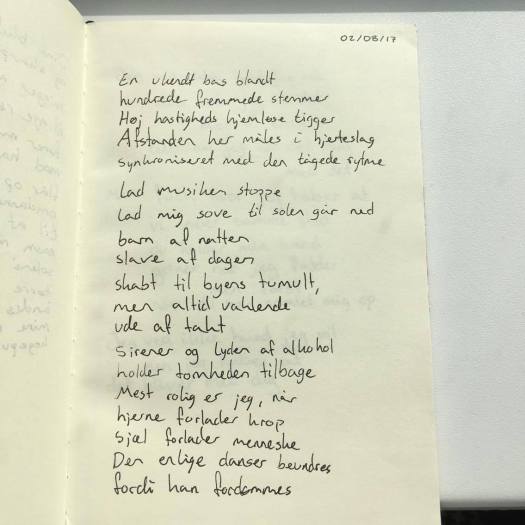 02/08/17
En ukendt bas blandt
hundrede fremmede stemmer
Høj hastigheds hjemløse tigger
Afstanden her måles i hjerteslag
synkroniseret med den tågede rytme
Lad musikken stoppe
Lad mig sove til solen går ned
barn af natten
slave af dagen
skabt til byens tumult,
men altid vaklende
ude af takt
Sirener og lyden af alkohol
holder tomheden tilbage
Mest rolig er jeg, når
hjerne forlader krop
Sjæl forlader menneske
Den enlige danser beundres
fordi han fordømmes